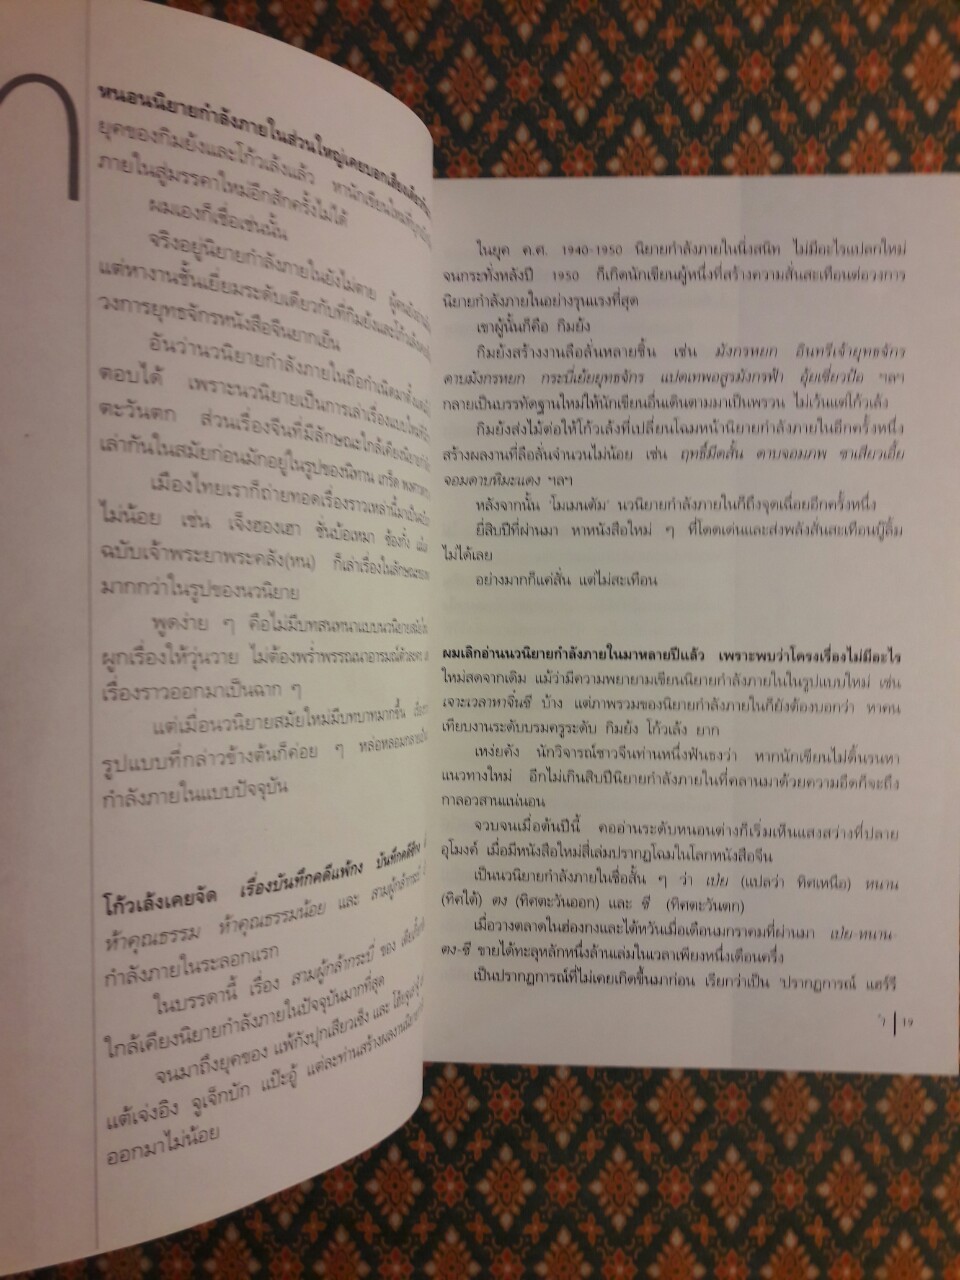 หนอนนิยายกำลังภายในส่วนใหญ่เคยบอกเสียงเดียวกัน
ยุคของกิมย้งและโก้วเล้งแล้ว หานักเขียนใหม่
ภายในสู่มรรคาใหม่อีกสักครั้งไม่ได้
ผมเองก็เชื่อเช่นนั้น
จริงอยู่นิยายกำลังภายในยังไม่ตาย ผู้คนยัง
แต่หางานชั้นเยี่ยมระดับเดียวกับที่กิมย้งและโก้วเล้ง
วงการยุทธจักรหนังสือจีนยากเย็น
อันว่านวนิยายกำลังภายในถือกำเนิดมาตั้งแต่
ตอบได้ เพราะนวนิยายเป็นการเล่าเรื่องแบบใหม่
ตะวันตก ส่วนเรื่องจีนที่มีลักษณะใกล้เคียงนิยาย
เล่ากันในสมัยก่อนมักอยู่ในรูปของนิทาน เกร็ด
เมืองไทยเราก็ถ่ายทอดเรื่องราวเหล่านี้มาเป็น
ไม่น้อย เช่น เจ็งฮองเฮา ซั่นบ้อเหมา ซ้องกั๋ง
ฉบับเจ้าพระยาพระคลัง(หน) ก็เล่าเรื่องในลักษณะ
มากกว่าในรูปของนวนิยาย
พูดง่าย ๆ คือไม่มีบทสนทนาแบบนวนิยายสมัย
ผูกเรื่องให้วุ่นวาย ไม่ต้องพร่ำพรรณนาอารมณ์ตัวละคร
เรื่องราวออกมาเป็นฉาก ๆ
แต่เมื่อนวนิยายสมัยใหม่มีบทบาทมากขึ้น
รูปแบบที่กล่าวข้างต้นก็ค่อย ๆ หล่อหลอมกลาย
กำลังภายในแบบปัจจุบัน
โก้วเล้งเคยจัด เรื่องบันทึกคดีแพ้กง บันทึกคดี
ห้าคุณธรรม ห้าคุณธรรมน้อย และ สามผู้กล้ากระบี่
กำลังภายในระลอกแรก
ในบรรดานี้ เรื่อง สามผู้กล้ากระบี่ ของ
ใกล้เคียงนิยายกำลังภายในปัจจุบันมากที่สุด
จนมาถึงยุคของ แพ้กังปุกเสียวเซ็ง และ
แต้เจ่งอิง จูเจ็กบัก แป๊ะอู้ แต่ละท่านสร้างผลงาน
ออกมาไม่น้อย
ในยุค ค.ศ. 1940-1950 นิยายกำลังภายในนิ่งสนิท ไม่มีอะไรแปลกใหม่
จนกระทั่งหลังปี 1950 ก็เกิดนักเขียนผู้หนึ่งที่สร้างความสั่นสะเทือนต่อวงการ
นิยายกำลังภายในอย่างรุนแรงที่สุด
เขาผู้นั้นก็คือ กิมย้ง
กิมย้งสร้างงานลือลั่นหลายชิ้น เช่น มังกรหยก อินทรีเจ้ายุทธจักร
ดาบมังกรหยก กระบี่เย้ยยุทธจักร แปดเทพอสูรมังกรฟ้า อุ้ยเซี่ยวป้อ ฯลฯ
กลายเป็นบรรทัดฐานใหม่ให้นักเขียนอื่นเดินตามมาเป็นพรวน ไม่เว้นแต่โก้วเล้ง
กิมย้งส่งไม้ต่อให้โก้วเล้งที่เปลี่ยนโฉมหน้านิยายกำลังภายในอีกครั้งหนึ่ง
สร้างผลงานที่ลือลั่นจำนวนไม่น้อย เช่น ฤทธิ์มีดสั้น ดาบจอมภพ ชอเสียวเอี้ย
จอมดาบหิมะแดง ฯลฯ
หลังจากนั้น 'โมเมนตัม' นวนิยายกำลังภายในก็ถึงจุดเฉื่อยอีกครั้งหนึ่ง
ยี่สิบปีที่ผ่านมา หาหนังสือใหม่ ๆ ที่โดดเด่นและส่งพลังสั่นสะเทือนบู๊ลิ้ม
ไม่ได้เลย
อย่างมากก็แค่สั่น แต่ไม่สะเทือน
ผมเลิกอ่านนวนิยายกำลังภายในมาหลายปีแล้ว เพราะพบว่าโครงเรื่องไม่มีอะไร
ใหม่สดจากเดิม แม้ว่ามีความพยายามเขียนนิยายกำลังภายในในรูปแบบใหม่ เช่น
เจาะเวลาหาจิ๋นซี บ้าง แต่ภาพรวมของนิยายกำลังภายในก็ยังต้องบอกว่า หาคน
เทียบงานระดับบรมครูระดับ กิมย้ง โก้วเล้ง ยาก
เหง่ยคัง นักวิจารณ์ชาวจีนท่านหนึ่งฟันธงว่า หากนักเขียนไม่ดิ้นรนหา
แนวทางใหม่ อีกไม่เกินสิบปีนิยายกำลังภายในที่คลานมาด้วยความอืดก็จะถึง
กาลอวสานแน่นอน
จวบจนเมื่อต้นปีนี้ คออ่านระดับหนอนต่างก็เริ่มเห็นแสงสว่างที่ปลาย
อุโมงค์ เมื่อมีหนังสือใหม่สี่เล่มปรากฏโฉมในโลกหนังสือจีน
เป็นนวนิยายกำลังภายในชื่อสั้น ๆ ว่า เป่ย (แปลว่า ทิศเหนือ) หนาน
(ทิศใต้) ตง (ทิศตะวันออก) และ ซี (ทิศตะวันตก)
เมื่อวางตลาดในฮ่องกงและไต้หวันเมื่อเดือนมกราคมที่ผ่านมา เป่ย-หนาน-
ตง-ซี ขายได้ทะลุหลักหนึ่งล้านเล่มในเวลาเพียงหนึ่งเดือนครึ่ง
เป็นปรากฏการณ์ที่ไม่เคยเกิดขึ้นมาก่อน เรียกว่าเป็น 'ปรากฏการณ์ แฮร์รี่
19